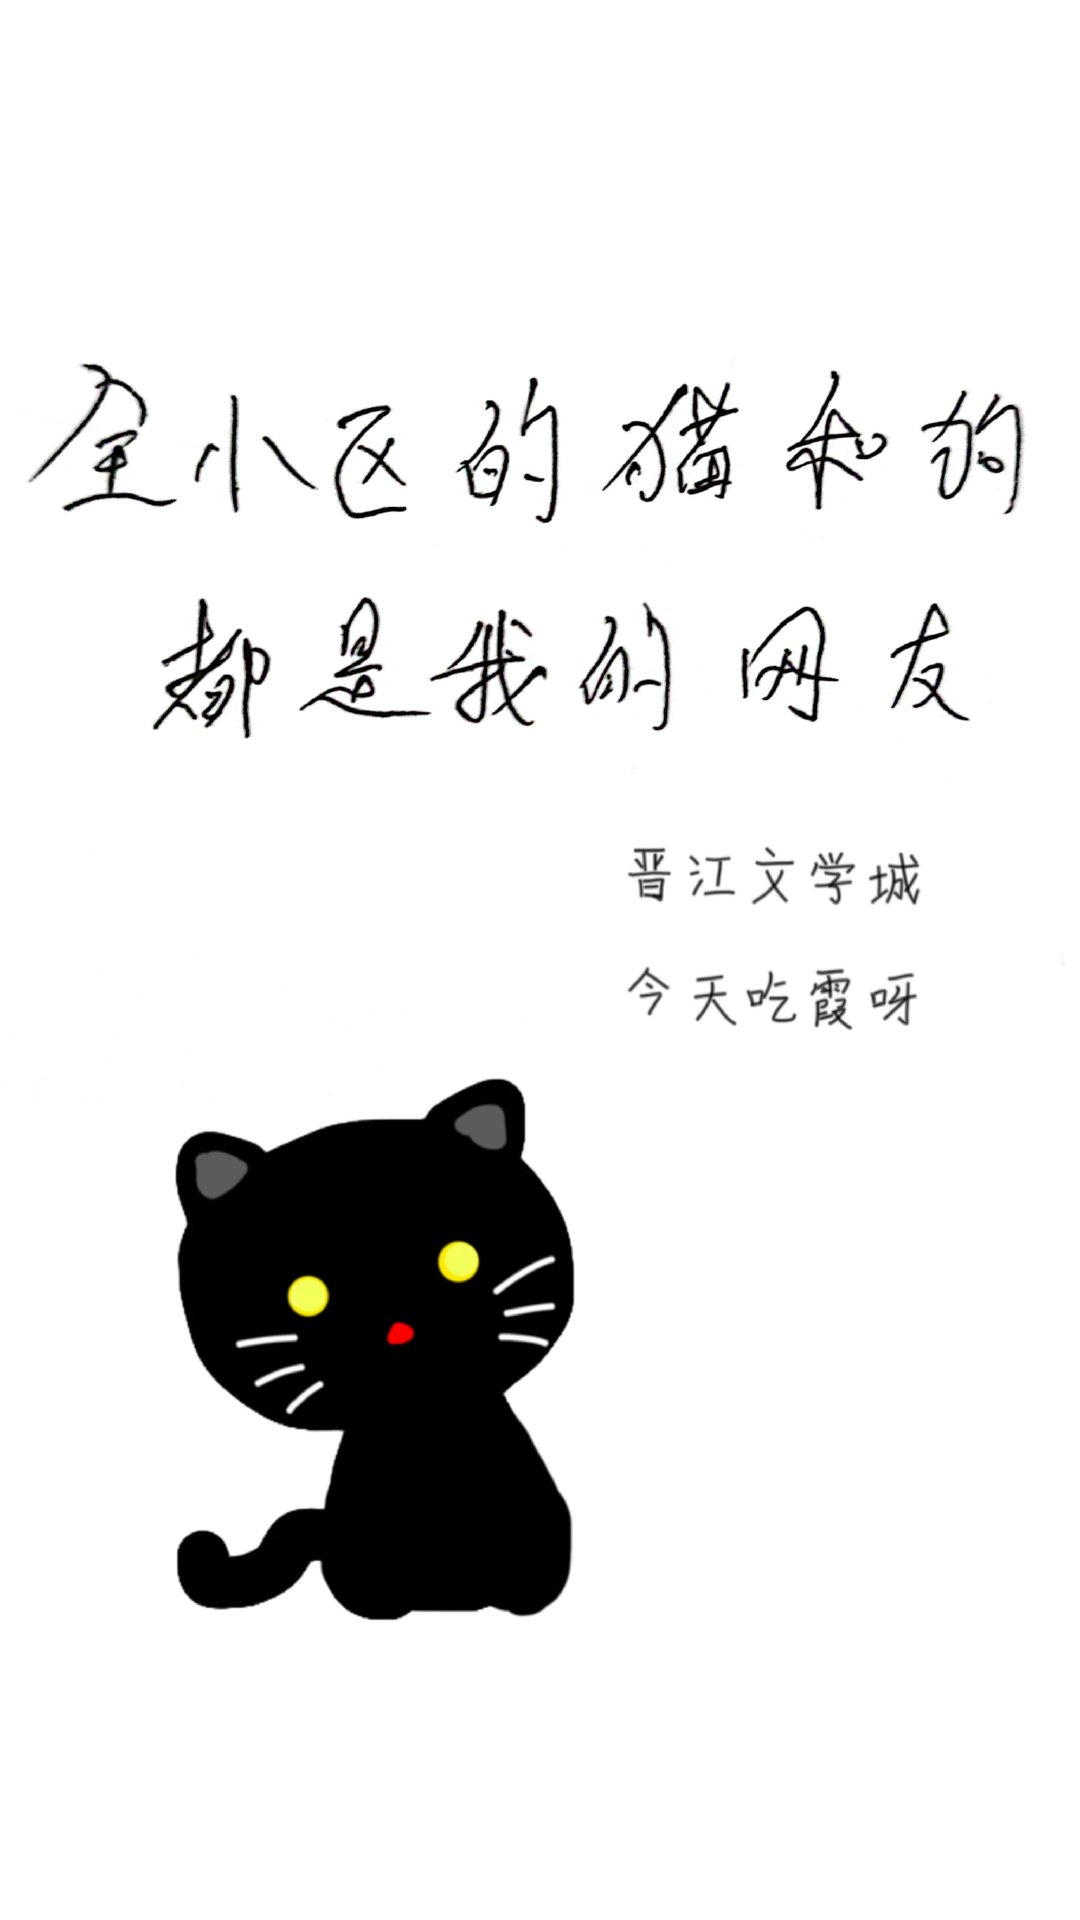 全小区的猫和狗
都是我的网友
晋江文学城
今天吃霞呀